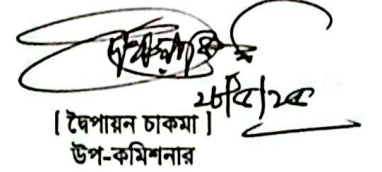 ২৮/৫/২৫
[ দ্বৈপায়ন চাকমা ]
উপ-কমিশনার